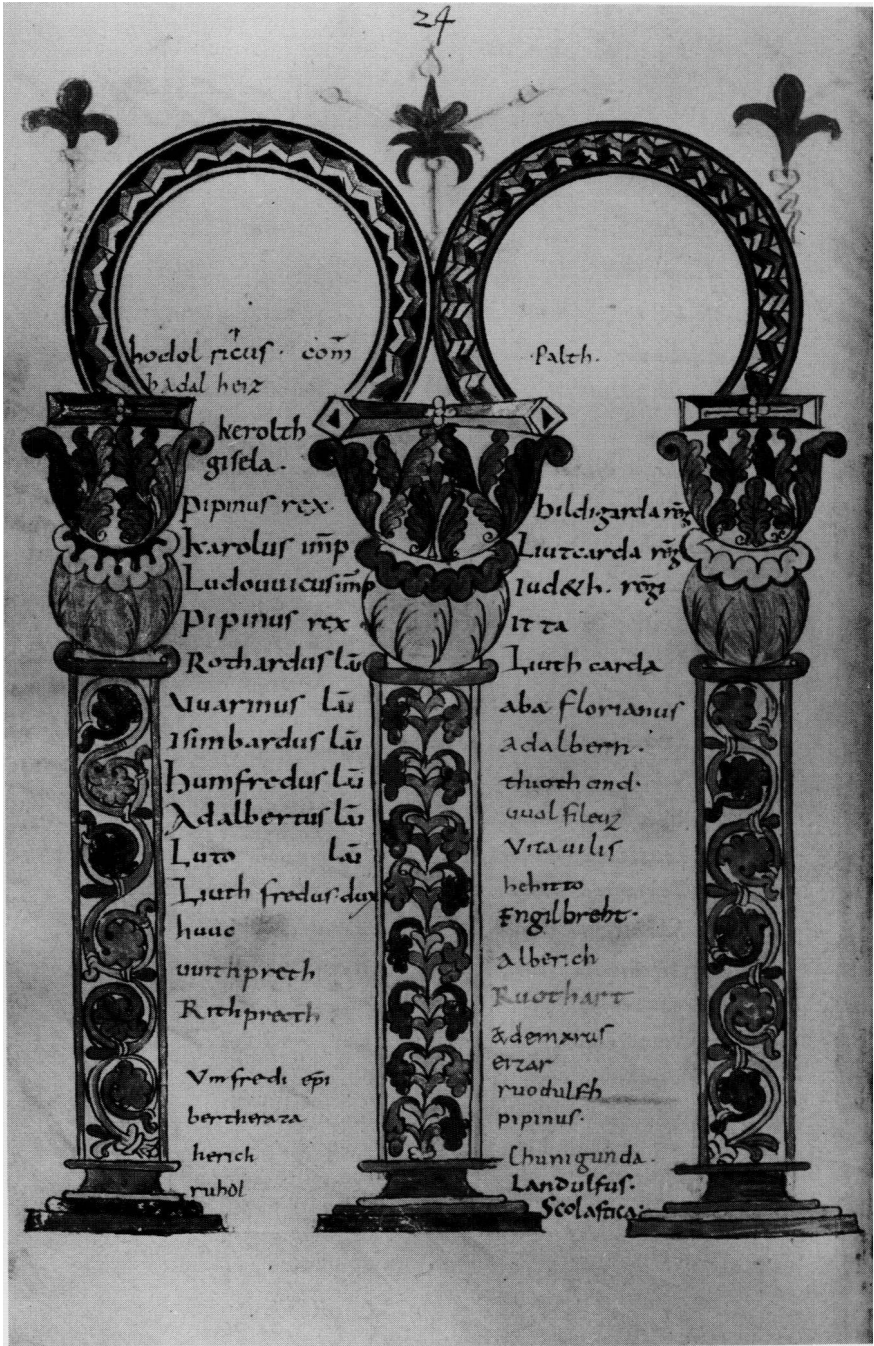 24
hodolricus · com̄
hadalherz
kerolth
gisela ·
pipinus rex ·
karolus imp̄
Ludouuicus imp̄
Pipinus rex
Rothardus laī
Uuarinus laī
Isimbardus laī
humfredus laī
Adalbertus laī
Luto laī
Liuthfredus · dux
huuc
uuithpreth
Rithpreth
Vmfredi ep̄i
herich
ruhol
· Palth ·
hildigarda reḡ
Liutcarda reḡ
Iud&h · reḡi
Itta
Liuthcarda
aba florianus
adalbern ·
Vitauilis
hehitto
Engilbreht ·
alberich
Ruothart
ademarus
erzar
ruodulfh
pipinus ·
Chunigunda ·
Landulfus ·
Scolastica ·